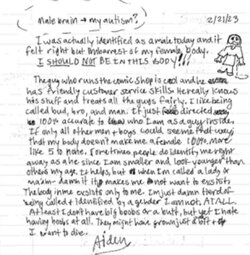 Male brain → my autism?
2/21/23
I was actually identified as a male today and it
felt right but unbearest of my female body.
I SHOULD NOT BE IN THIS BODY!!!
The guy who runs the comic shop is cool and he
has friendly customer service skills. He really knows
his stuff and treats all the guys fairly. I like being
called bud, bro, and man. It just directed
100% accurate to who I am as a guy inside.
If only all other men + boys could seeme that way,
that my body doesn't make me a female 100%, more
like 5 to none. Sometimes people do identify me right
away as a he since I am smaller and look younger than
others my age. It helps, but when I'm called a lady or
ma'am- damn it makes me not want to exist.
The body in me exists only to me. I'm just damn tired of
being called + identified by a gender I am not, AT ALL.
At least I don't have big boobs or a butt, but yet I hate
having boobs at all. They might have grown just a bit +
I want to die.
Aiden